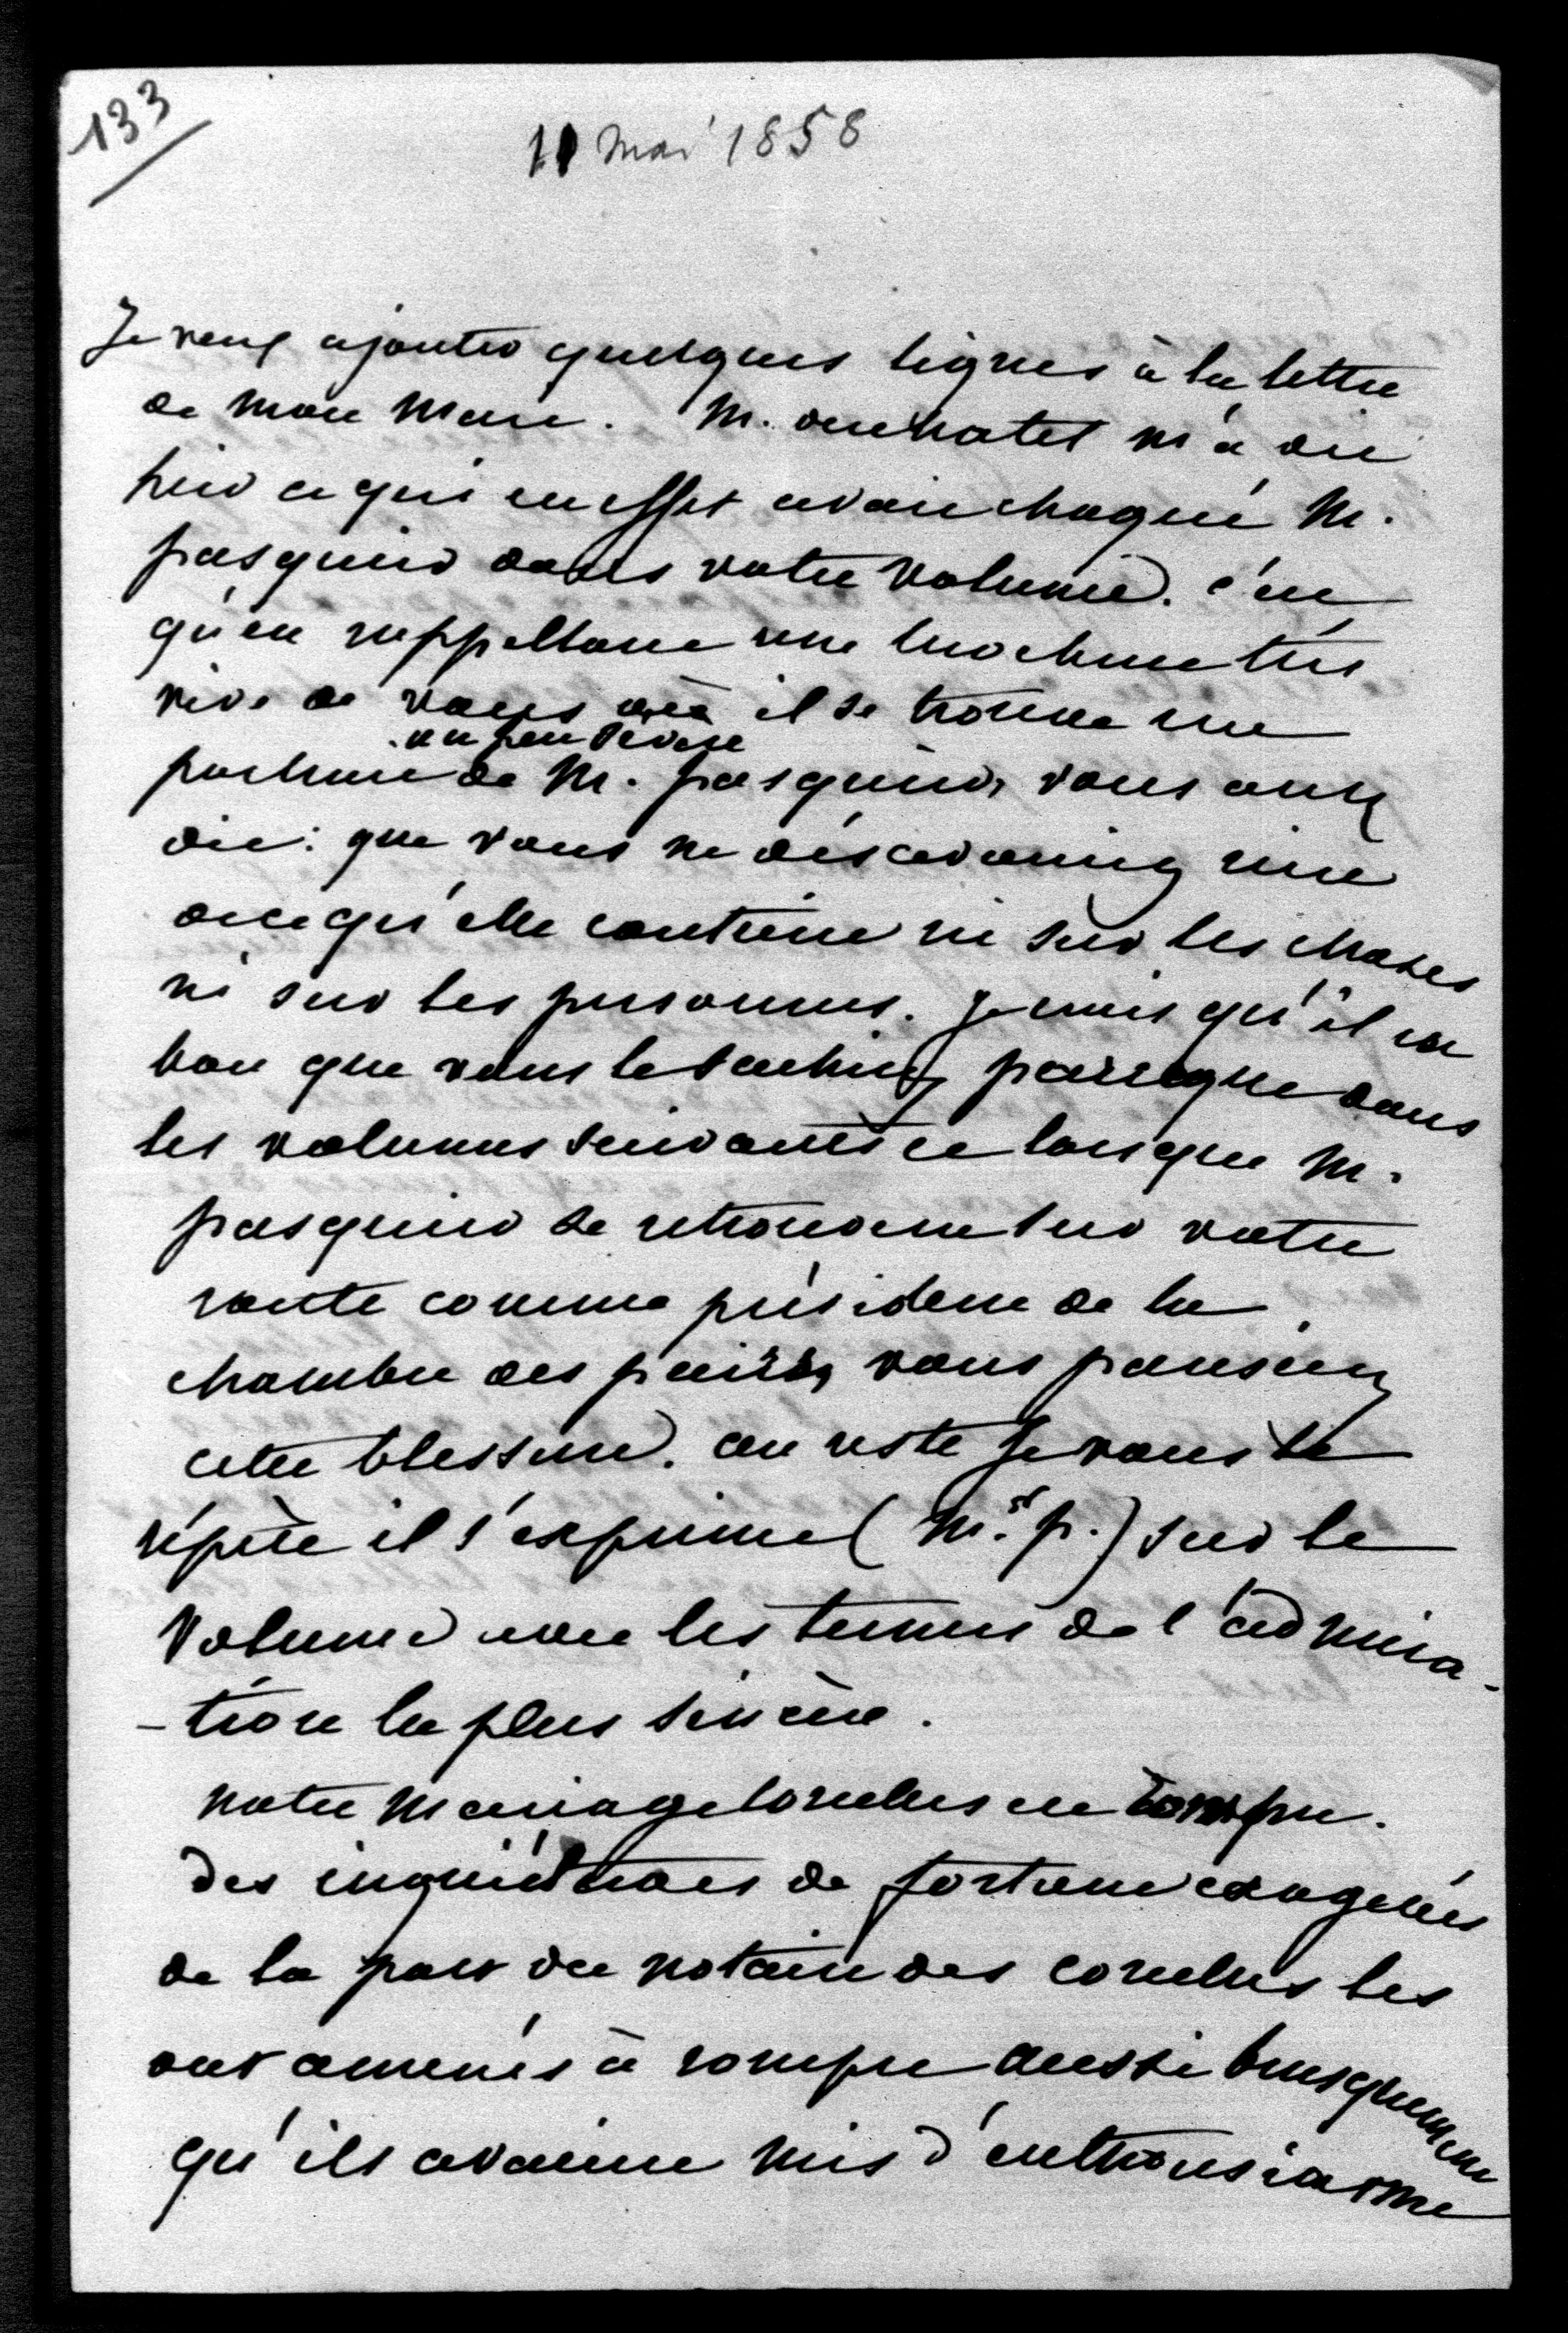 133
11 mai 1858
Je veux ajouter quelques lignes à la lettre
de mon mari. M. duchatel m'a dit
hier ce qui en effet avait choqué M.
pasquier dans votre volume. c'est
qu'en rappellant une brochure très
vive de vous où il se trouve un
un peu sévère
portrait de M. pasquier, vous avez
dit: que vous ne désavouiez rien
de ce qu'elle contient ni sur les choses
ni sur les personnes. Je crois qu'il est
bon que vous le sachiez parceque dans
les volumes suivants et lorsque M.
pasquier se retrouvera sur votre
route comme président de la
chambre des pairs, vous pansiez
cette blessure. au reste Je vous le
répète il s'exprime (M. p.) sur le
volume avec les termes de l'admira-
-tion la plus sincère.
notre mariage Cornelus est rompu.
des inquiétudes de fortune exagérées
de la part du notaire des cornelus les
ont amenés à rompre aussi brusquement
qu'ils avaient mis d'enthousiasme